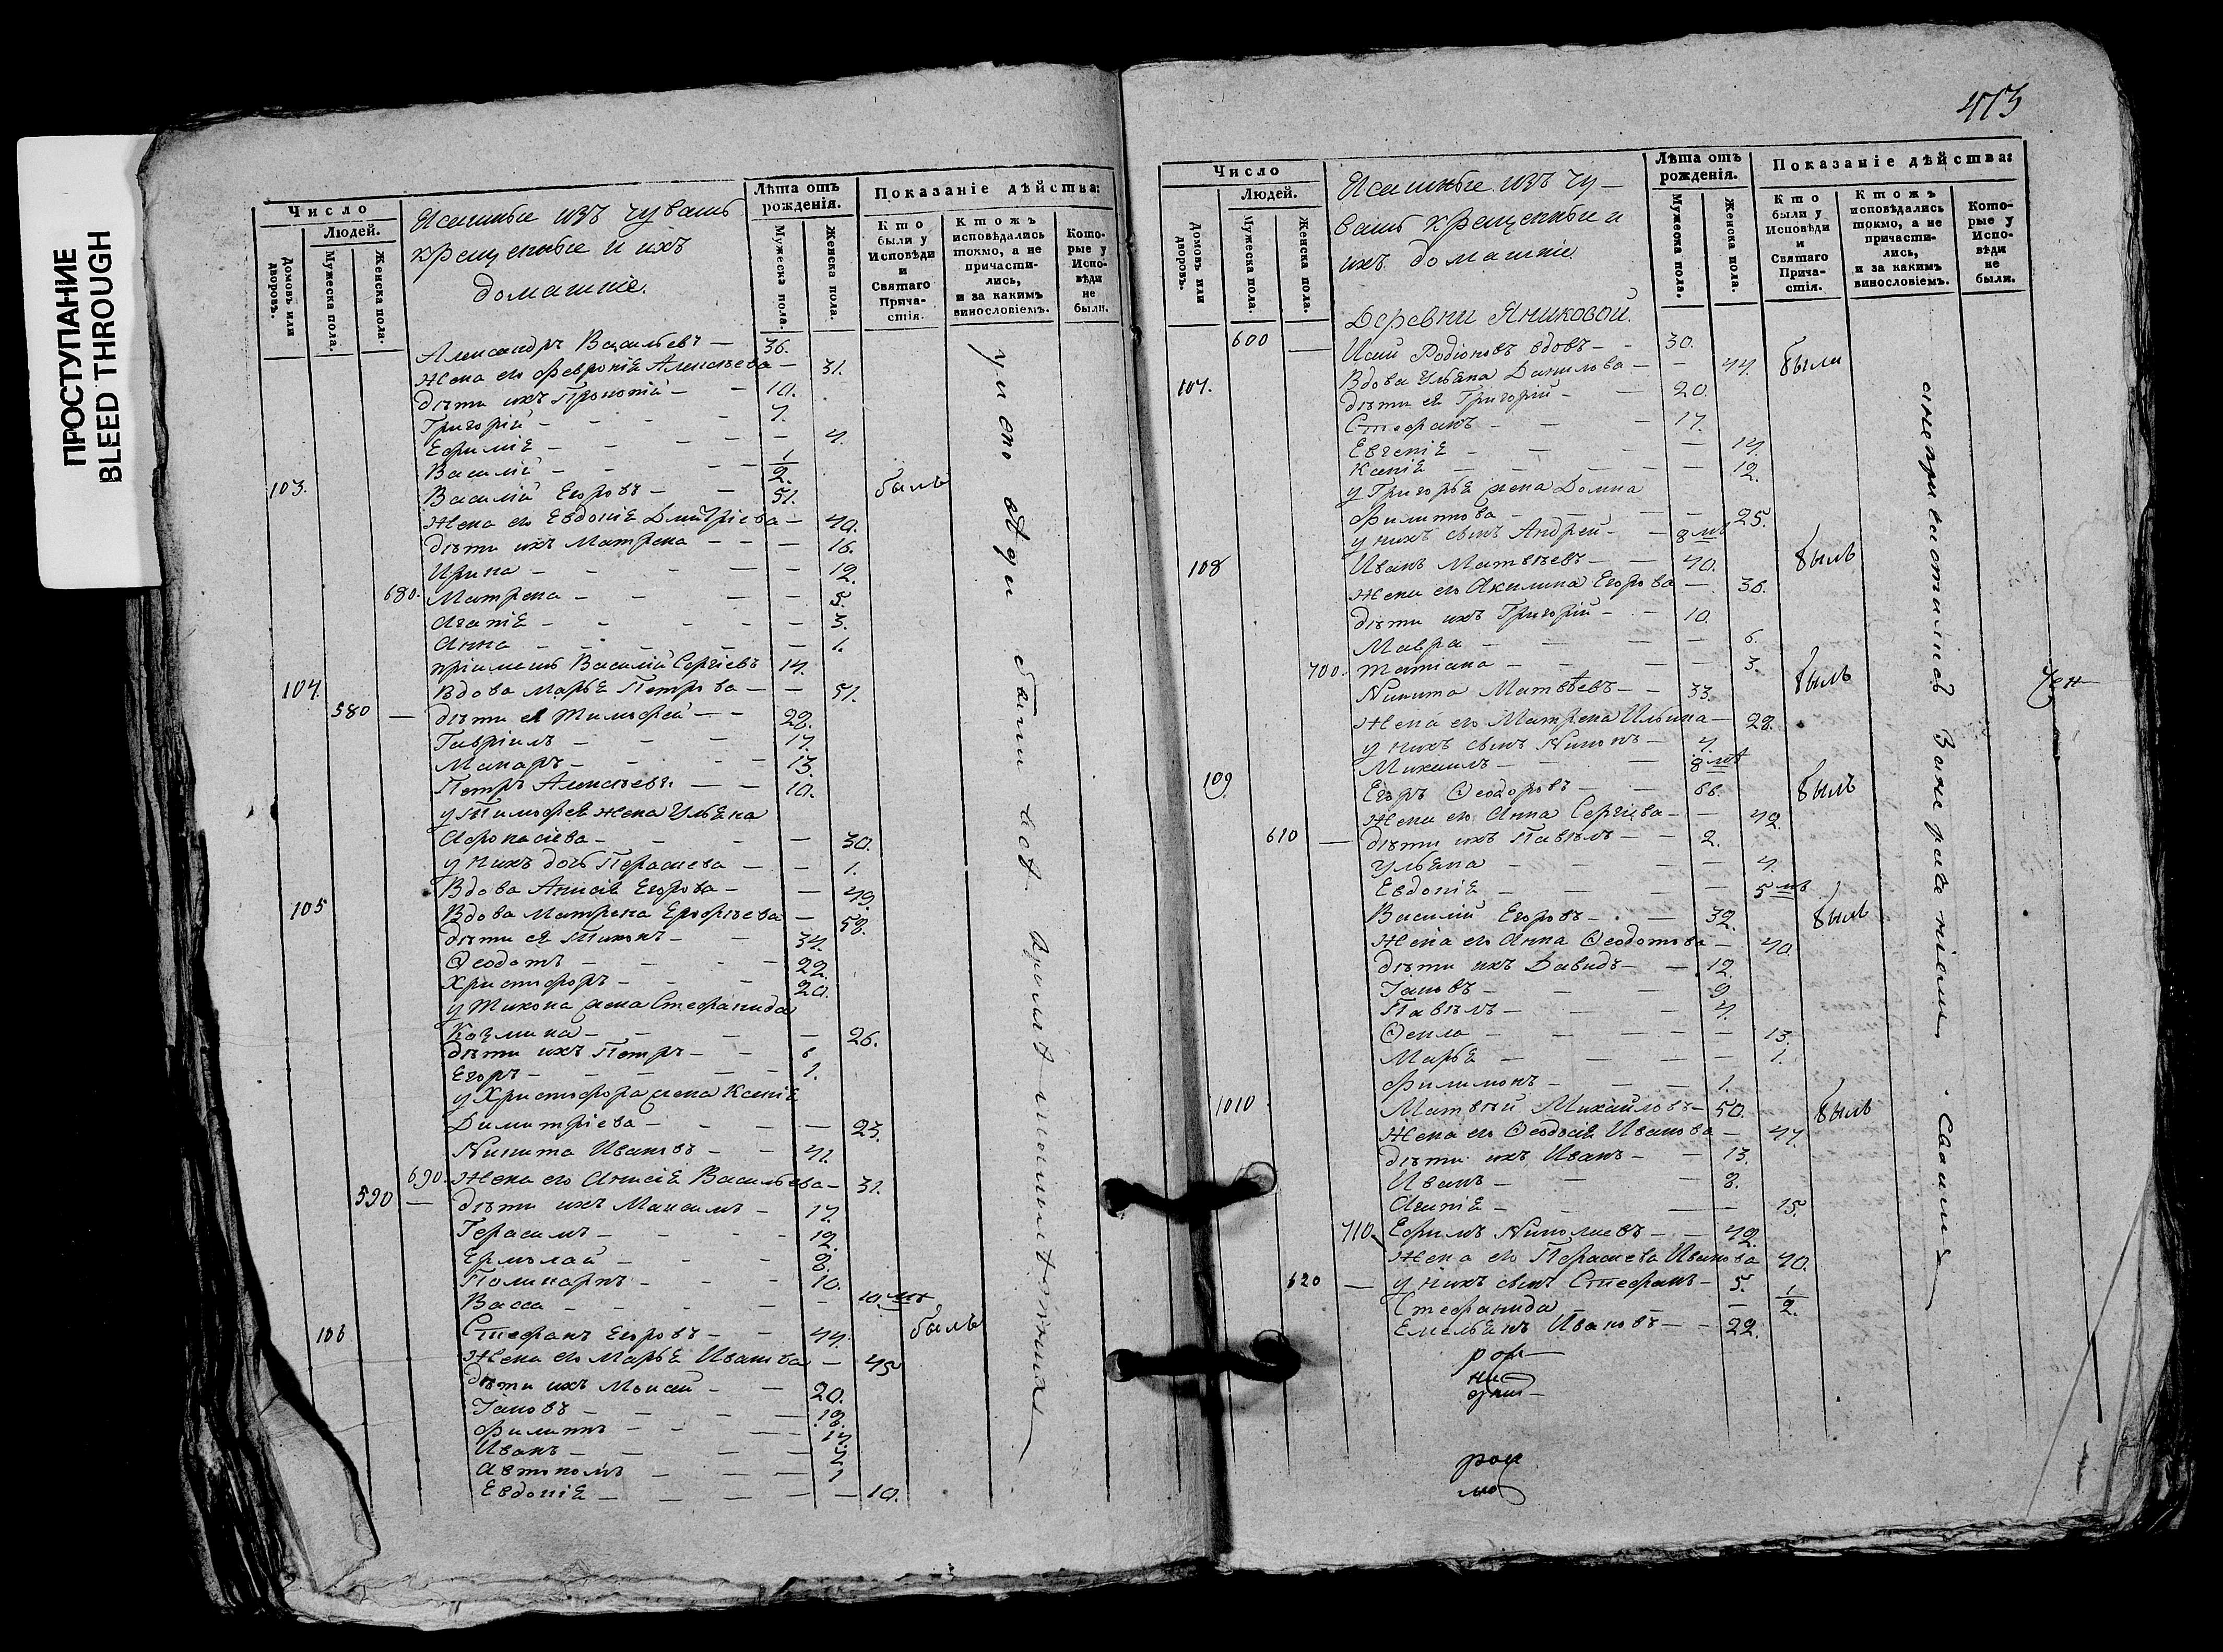 ПРОСТУПАНИЕ
BLEED THROUGH
Число
Людей.
Домовъ или дворовъ.
Мужеска пола.
Женска пола.
Ясашные изъ чувашъ
крещеные и ихъ
домашніе.
Лѣта отъ рожденія.
Мужеска пола.
Женска пола.
Показаніе дѣйства:
Кто были у Исповѣди и Святаго Прича-стія.
Ктожъ исповѣдались токмо, а не причасти-лись, и за какимъ винословіемъ.
Кото-рые у Испо-вѣди не были.
Александръ Васильевъ — 36.
Жена его Февронія Алексѣева — 31.
дѣти ихъ Прокопій — 10.
Григорій — 7.
Ефимія — 4.
Василій — 1/2.
103. Василій Егоровъ — 51. былъ
Жена его Евдокія Дмитріева — 40.
дѣти ихъ Матрена — 16.
Ирина — 12.
680. Матрена — 5.
Агапія — 3.
Анна — 1.
пріимышъ Василій Сергіевъ 14.
104. Вдова Марья Петрова — 51.
580 — дѣти ея Тимофей — 28.
Гавріилъ — 17.
Макаръ — 13.
Петръ Алексѣевъ — 10.
у Тимофея жена Ульяна
Афонасіева — 30.
у нихъ дочь Параскева — 1.
Вдова Анисія Егорова — 49.
105 Вдова Матрена Ерофѣева — 58.
дѣти ея Тихонъ — 34.
Ѳеодотъ — 22.
Христофоръ — 20.
у Тихона жена Стефанида
Козмина — 26.
дѣти ихъ Петръ — 6
Егоръ — 1.
у Христофора жена Ксенія
Димитріева — 23.
Никита Ивановъ — 41.
690. Жена его Анисія Васильева — 31.
590 — дѣти ихъ Максимъ — 17.
Герасимъ — 12.
Ермолай — 8.
Поликарпъ — 10.
Васса — 10. мѣ
106 Стефанъ Егоровъ — 44. былъ
Жена его Марья Иванова — 45
дѣти ихъ Моисей — 20.
Іаковъ — 18.
Филиппъ — 14.
Иванъ —
Автономъ — 1
Евдокія — 10.
413
Число
Людей.
Домовъ или дворовъ.
Мужеска пола.
Женска пола.
Ясашные изъ чу-
вашъ крещеные и
ихъ домашніе
Лѣта отъ рожденія.
Мужеска пола.
Женска пола.
Показаніе дѣйства:
Кто были у Исповѣди и Святаго Прича-стія.
Ктожъ исповѣдались токмо, а не причасти-лись, и за какимъ винословіемъ.
Кото-рые у Испо-вѣди не были.
Деревни Яниковой.
600 — Исай Родіоновъ вдовъ — 30.
107. Вдова Ульяна Данилова — 44. были
дѣти ея Григорій — 20.
Стефанъ — 17.
Евгенія — 14.
Ксенія — 12.
у Григорья жена Домна
Филипова — 25.
у нихъ сынъ Андрей — 8 мѣ
108 Иванъ Матвѣевъ — 40. былъ
Жена его Акилина Егорова — 36.
дѣти ихъ Григорій — 10.
Мавра — 6.
700. Татіана — 3.
Никита Матвѣевъ — 33. былъ
Жена его Матрена Ильина — 28.
у нихъ сынъ Никонъ — 4.
Михаилъ — 8 мѣ
109. Егоръ Ѳеодоровъ — 66. былъ
Жена его Анна Сергіева — 42.
610 — дѣти ихъ Павелъ — 2.
Ульяна — 4.
Евдокія — 5 мѣ
Василій Егоровъ — 32. былъ
Жена его Анна Ѳеодотова — 40.
дѣти ихъ Давидъ — 12.
Іаковъ — 9
Павелъ — 4.
Ѳекла — 13.
Марья — 1.
Филимонъ — 1.
1010. Матвѣй Михайловъ — 50. былъ
Жена его Ѳеодосія Иванова — 47.
дѣти ихъ Иванъ — 13.
Иванъ — 8.
Агапія — 15.
710. Ефимъ Николаевъ — 42.
Жена его Параскева Иванова 40.
620 — у нихъ сынъ Стефанъ — 5.
Стефанида — 1/2.
Емельянъ Ивановъ — 22.